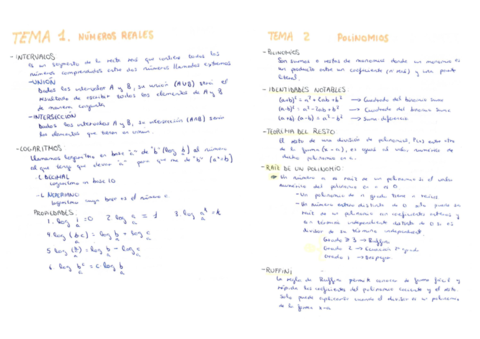 TEMA 1. NÚMEROS REALES
- INTERVALOS
Es un segmento de la recta real que contiene todos los
números comprendidos entre dos números llamados extremos
- UNIÓN
Dados los intervalos A y B, su unión (A∪B) será el
resultado de escribir todos los elementos de A y B
de manera conjunta
- INTERSECCIÓN
Dados los intervalos A y B, su intersección (A∩B) serán
los elementos que tienen en común.
- LOGARITMOS
Llamamos logaritmo en base "a" de "b" (log_a b) al número
al que tengo que elevar "a" para que me dé "b"
DECIMAL
Logaritmo en base 10
NEPERIANO
Logaritmo cuya base es el número e
PROPIEDADES
1. log_a 1 = 0 2 log_a a = 1 3. log_a a^k = k
4 log_a (b·c) = log_a b + log_a c
5 log_a (b/c) = log_a b - log_a c
6 log_a b^c = c log_a b
TEMA 2 POLINOMIOS
- POLINOMIOS
Son sumas o restas de monomios donde un monomio es
un producto entre un coeficiente (nº real) y una parte
literal.
- IDENTIDADES NOTABLES
(a+b)² = a² + 2ab + b² → Cuadrado del binomio suma
(a-b)² = a² - 2ab + b² → Cuadrado del binomio
(a+b)·(a-b) = a² - b² → Suma diferencia
- TEOREMA DEL RESTO
El resto de una división de polinomios, P(x) entre otro
de la forma (x-a), es igual al valor numérico de
dicho polinomio en a.
- RAÍZ DE UN POLINOMIO
Un número a es raíz de un polinomio si el valor
numérico del polinomio en a es 0
- Un polinomio de n grado tiene n raíces
- Un número entero distinto de 0
raíz de un polinomio con coeficientes enteros y
término independiente distinto de 0 si es
divisor de su término independiente.
Grado ≥ 3 → Ruffini
Grado 2 → Ecuación 2º grado
Grado 1 → Despejar
- RUFFINI
La regla de Ruffini permite de forma fácil y
rápida los coeficientes del polinomio cociente y el resto.
Solo puede aplicarse cuando el divisor es un polinomio
de la forma x-a